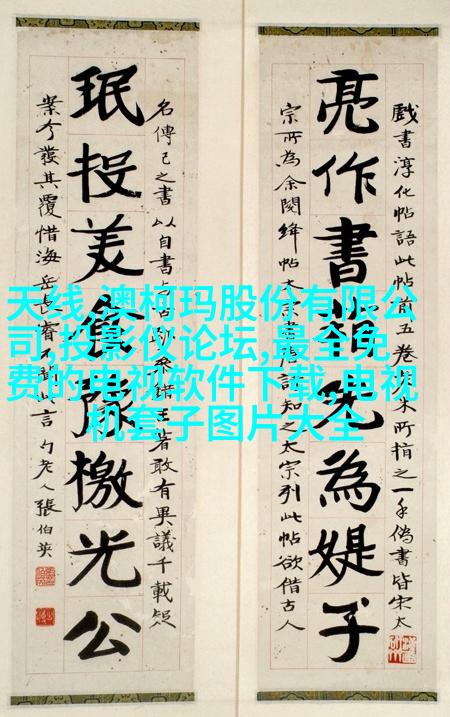 天线,澳柯玛股份有限公
司,投影仪论坛,最全免
费的电视软件下载,电视
机套子图片大全
戲書淳化帖語此帖前五卷米所指之一手偽書皆宋太
亮作書為媞子
宗所為余閱絳帖太宗書知之太宗列此帖欲借古人
名傳己之書以自書与古來錯王著敢有異議千載疑
珉投美食豫檄光公
案今發其覆惜海岳長睿不聞此言勺老人張伯英